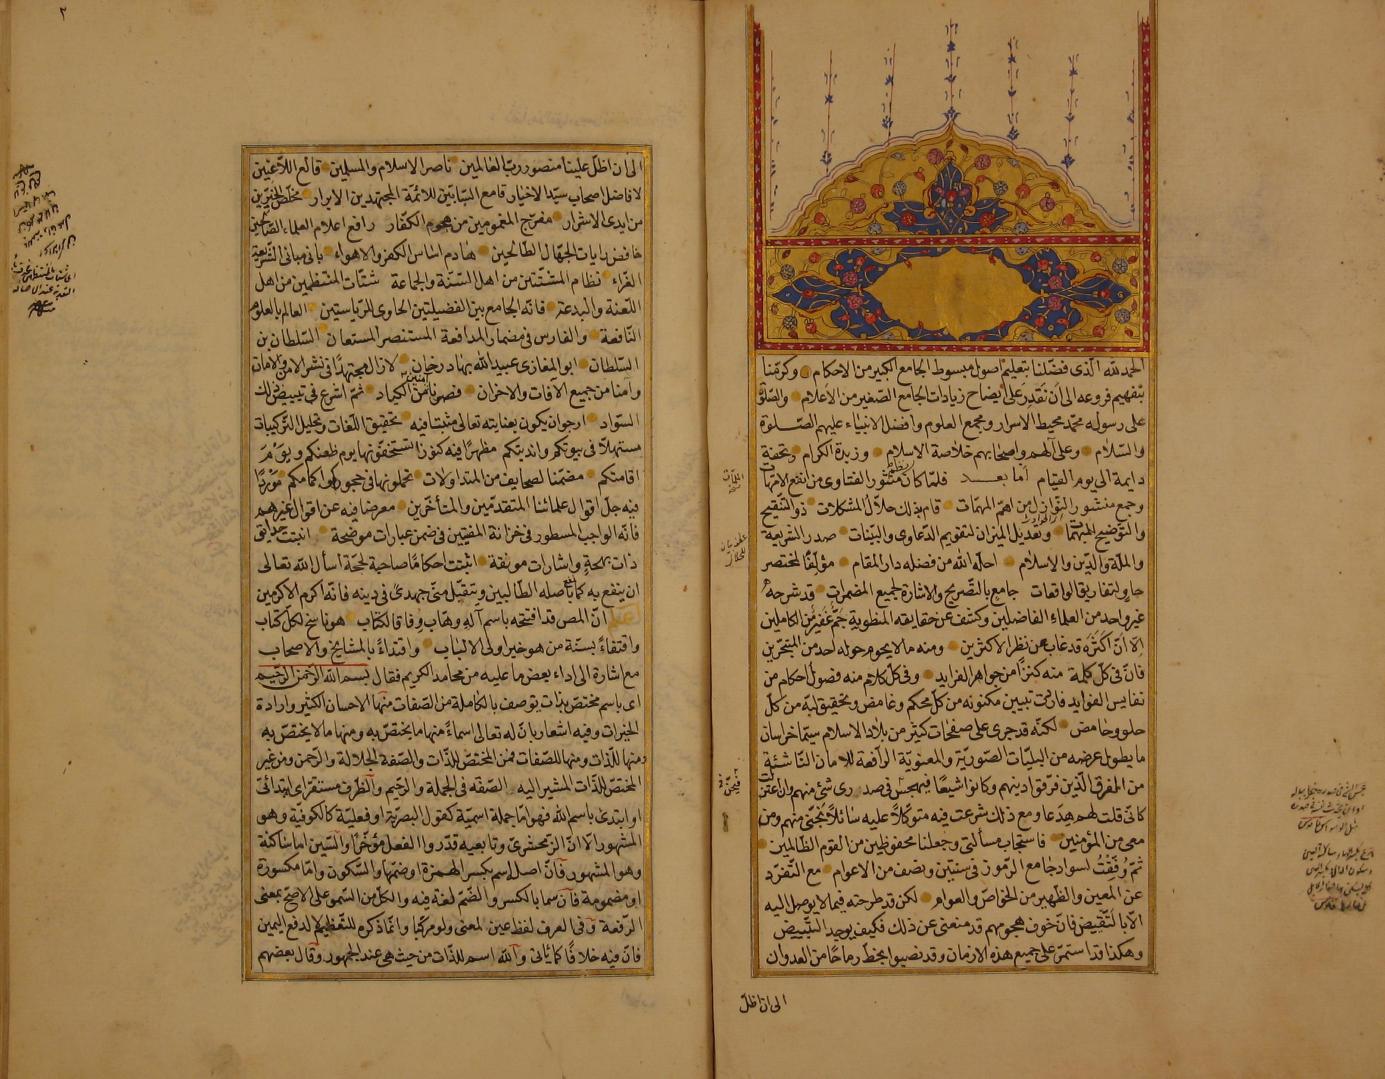 الحمد لله الذى فضلنا بتعليم اصول مبسوط الجامع الكبير من الاحكام وكرمنا
بتفهيم فروعه الى أن نقدر على أيضاح زيادات الجامع الصغير من الأعلام والصلوة
على رسوله محمد محيط الاسرار ومجمع العلوم وافضل الانبياء عليهم الصلوة
والسلام وعلى آلهم واصحابهم خلاصة الاسلام وزبدة الكرام وتحفة
دايمة الى يوم القيام اما بعد فلما كان منثور الفتاوى من انفع الامهات
وجمع منشور النوازل من اهم المهمات قام بذلك حلال المشكلات ذو التنقيح
والتوضيح وتعديل الميزان لتقويم الدعاوى والبينات صدر الشريعة
والملة والدين والاسلام احله الله من فضله دار المقام مؤلفا لمختصر
حاو لتفاريق الواقعات جامع بالتصريح والاشارة لجميع المضمرات قد شرحه
غير واحد من العلماء الفاضلين وكشف عن حقايقه المنظوية جم غفير من الكاملين
الا ان اكثره قد غاب عن نظر الاكثرين ومنه ما لا يحوم حوله احد من المتبحرين
فان فى كل كلمة منه كنزا من جواهر الفرايد وفى كل كلام منه فصول احكام من
نفايس الفوايد فاردت تبيين مكنونه من كل محكم وغامض وتحقيق لبه من كل
حلو وحامض لكنه قد جرى على صفحات كثير من بلاد الاسلام سيما خراسان
ما يطول عرضه من البليات الصورية والمعنوية الرافعة للامان الناشئة
من المفرق الذين فرقوا دينهم وكانوا شيعا فيهجس فى صدرى شئ منهم وان
كانى قلت لهم هدعا ومع ذلك شرعت فيه متوكلا عليه سائلا نجنى منهم ومن
معى من المؤمنين فاستجاب مسألتى وجعلنا محفوظين من القوم الظالمين
ثم وفقت اسواد جامع الرموز فى سنتين ونصف من الاعوام مع التفرد
عن المعين والظهير من الخواص والعوام لكن قد طرحته فيما لا يوصل اليه
الا بالتنقيض فان خوف هجومهم قد منعنى عن ذلك فكيف يوجد التبييض
وهكذا قد استمر على جميع هذه الازمان وقد نصبوا بخط رماحا من العدوان
الى ان اظل
٢
الى ان اظل علينا منصور رب العالمين ناصر الاسلام والمسلمين قالع اللاعنين
لافاضل اصحاب سيد الاخيار قامع السبابين للائمة المجتهدين الابرار مخلص الخيرين
من ايدى الاشرار مفرج المغمومين من هجوم الكفار رافع اعلام العلماء الصالحين
خافض رايات الجهال الطالحين هادم اساس الكفر والاهواء بانى مبانى الشريعة
الغراء نظام المتشتتين من اهل السنة والجماعة شتات المنتظمين من اهل
اللعنة والبدعة فانه الجامع بين الفضيلتين الحاوى للرياستين العالم بالعلوم
النافعة والفارس فى مضمار المدافعة المستنصر المستعان السلطان بن
السلطان ابو المغازى عبيد الله بهادر خان لازال مجتهدا فى نشر الامن والامان
وآمنا من جميع الافات والاحزان فصرنا آمنين من الكياد ثم اشرع فى تبييض ذلك
السواد ارجو ان يكون بعنايته تعالى مثبتا فيه تحقيق اللغات وتحليل التركيبات
مستهلا فى بيوتكم وانديتكم مظهرا فيه كنوزا تستخفونها يوم ظعنكم ويوم
اقامتكم مضمنا لصحايف من المتداولات تحملونها فى حجوركم واكمامكم موردا
فيه جل اقوال علمائنا المتقدمين والمتأخرين معرضا فيه عن اقوال غيرهم
فانه الواجب المسطور فى خزانة المفتين فى ضمن عبارات موضحة انبتت حدايق
ذات بهجة واشارات مونقة اثبتت احكاما صاحية لحجة أسأل الله تعالى
ان ينفع به كما باصله الطالبين ويتقبل منى جهدى فى دينه فانه اكرم الاكرمين
ان المص قد افتتحه باسم آله وهاب وفاقا لكتاب هو ناسخ لكل كتاب
واقتفاء بسنة من هو خير اولى الالباب واقتداء بالمشايخ والاصحاب
مع اشارة الى اداء بعض ما عليه من محامد الكريم فقال بسم الله الرحمن الرحيم
اى باسم مختص بذات يوصف بالكاملة من الصفات منها الاحسان الكثير وارادة
الخيرات وفيه اشعار بان له تعالى اسماء منها ما يختص به ومنها ما لا يختص به
ومنها للذات ومنها للصفات فمن المختص للذات والصفة الجلالة والرحمن ومن غير
المختص للذات المشير اليه الصفه فى الجملة والرحيم والظرف مستقر اى ابتدائى
او ابتدئ باسم الله فهو اما جملة اسمية كقول البصرية او فعلية كالكوفية وهو
المشهور الا ان الزمحشرى وتابعيه قدروا الفعل مؤخرا والسين اما ساكنة
وهو المشهور فان اصل اسم بكسر الهمزة او ضمها والسكون واما مكسورة
او مضمومة فان سما بالكسر والضم لغة فيه والكل من السمو على الاصح بمعنى
الرفعة وفى العرف لفظ عين لمعنى ولو مركبا وانما ذكره للتعظيم او لدفع اليمين
فان فيه خلافا كما يأتى والله اسم للذات من حيث هى عند الجمهور وقال بعضهم